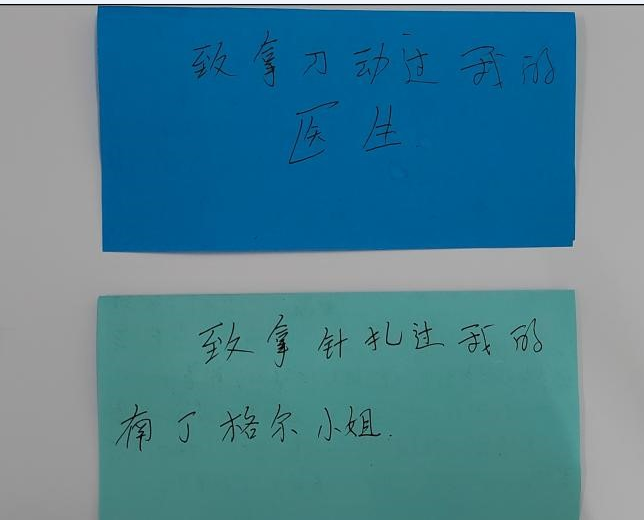 致拿刀动过我的
医生.
致拿针扎过我的
南丁格尔小姐.